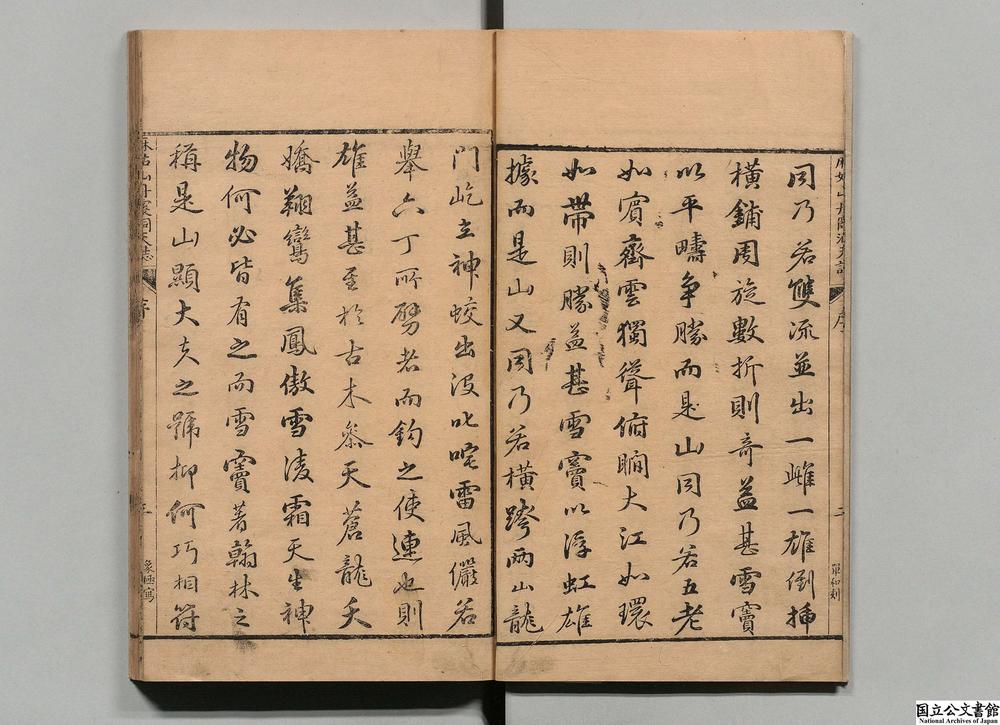 同乃若雙流並出一雌一雄倒插
橫鋪周旋數折則奇益甚雪竇
以平疇爭勝而是山同乃若五老
如賓齊雲獨聳俯瞷大江如環
如帶則勝益甚雪竇以浮虹雄
據而是山又同乃若橫跨兩山龍
序
二
門屹立神蛟出沒叱咤雷風儼若
舉六丁所劈者而鈞之使連也則
雄益甚至於古木叅天蒼龍夭
嬌翔鸞集鳳傲雪凌霜天生神
物何必皆有之而雪竇著翰林之
稱是山顯大夫之號抑何巧相符
麻姑山丹霞洞天誌
序
三
國立公文書館
National Archives of Japan